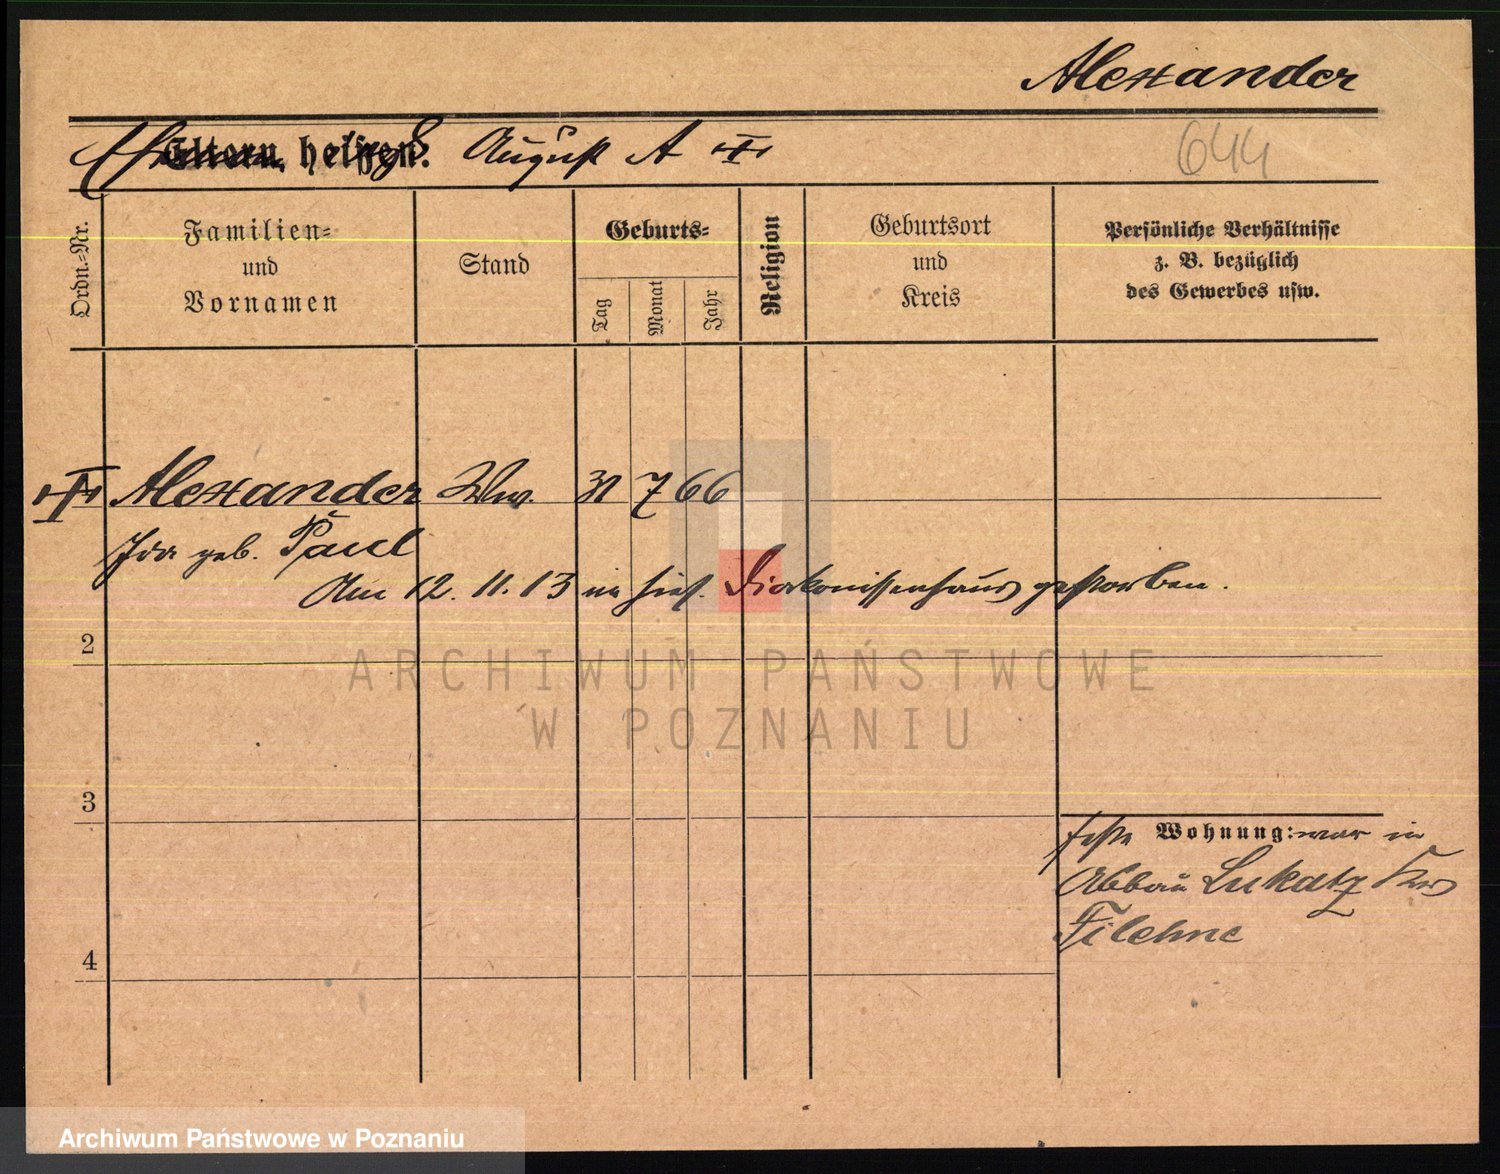 Alexander
Eltern heißen. August A
644
Ordn.-Nr.
Familien-
und
Vornamen
Stand
Geburts-
Tag
Monat
Jahr
Religion
Geburtsort
und
Kreis
Persönliche Verhältnisse
z. B. bezüglich
des Gewerbes usw.
Alexander Ww. 31 7 66
Ida geb. Paul
Am 12. 11. 13 im hies. Diakonissenhaus gestorben.
2
ARCHIWUM PAŃSTWOWE
W POZNANIU
3
feste Wohnung: war in
Abbau Lukatz Krs
Filehne
4
Archiwum Państwowe w Poznaniu